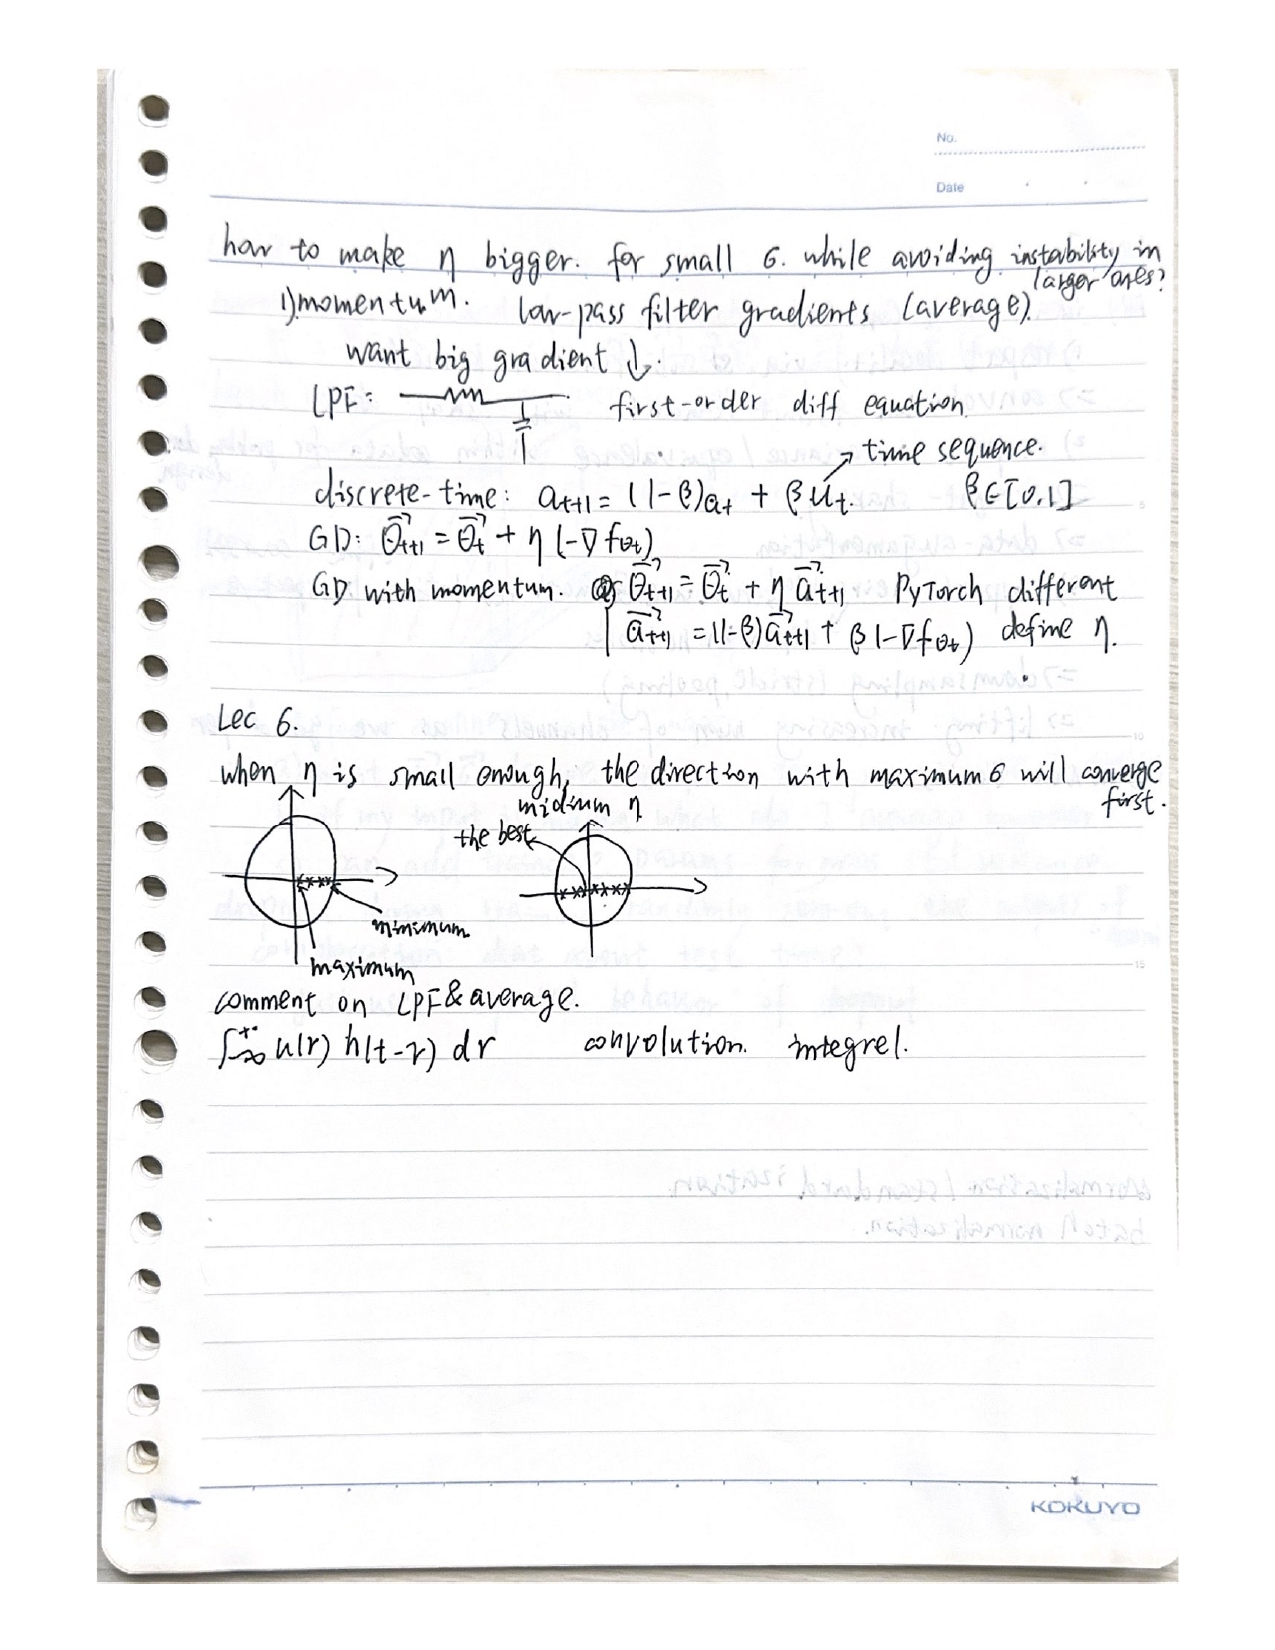 No.
Date
how to make η bigger. for small σ. while avoiding instability in
larger ones?
1) momentum. low-pass filter gradients (average).
want big gradient ↓.
LPF: first-order diff equation.
→ time sequence.
discrete-time: a_{t+1} = (1-β)a_t + β u_t. β∈[0,1]
GD: θ⃗_{t+1} = θ⃗_t + η (-∇f_{θ_t})
GD with momentum. θ⃗_{t+1} = θ⃗_t + η a⃗_{t+1} PyTorch different
a⃗_{t+1} = (1-β)a⃗_{t+1} + β(-∇f_{θ_t}) define η.
Lec 6.
when η is small enough, the direction with maximum σ will converge
first.
η
the best
minimum
maximum
comment on LPF & average.
∫_{-∞}^{+∞} u(τ) h(t-τ) dτ convolution. integrel.
5
10
15
KOKUYO